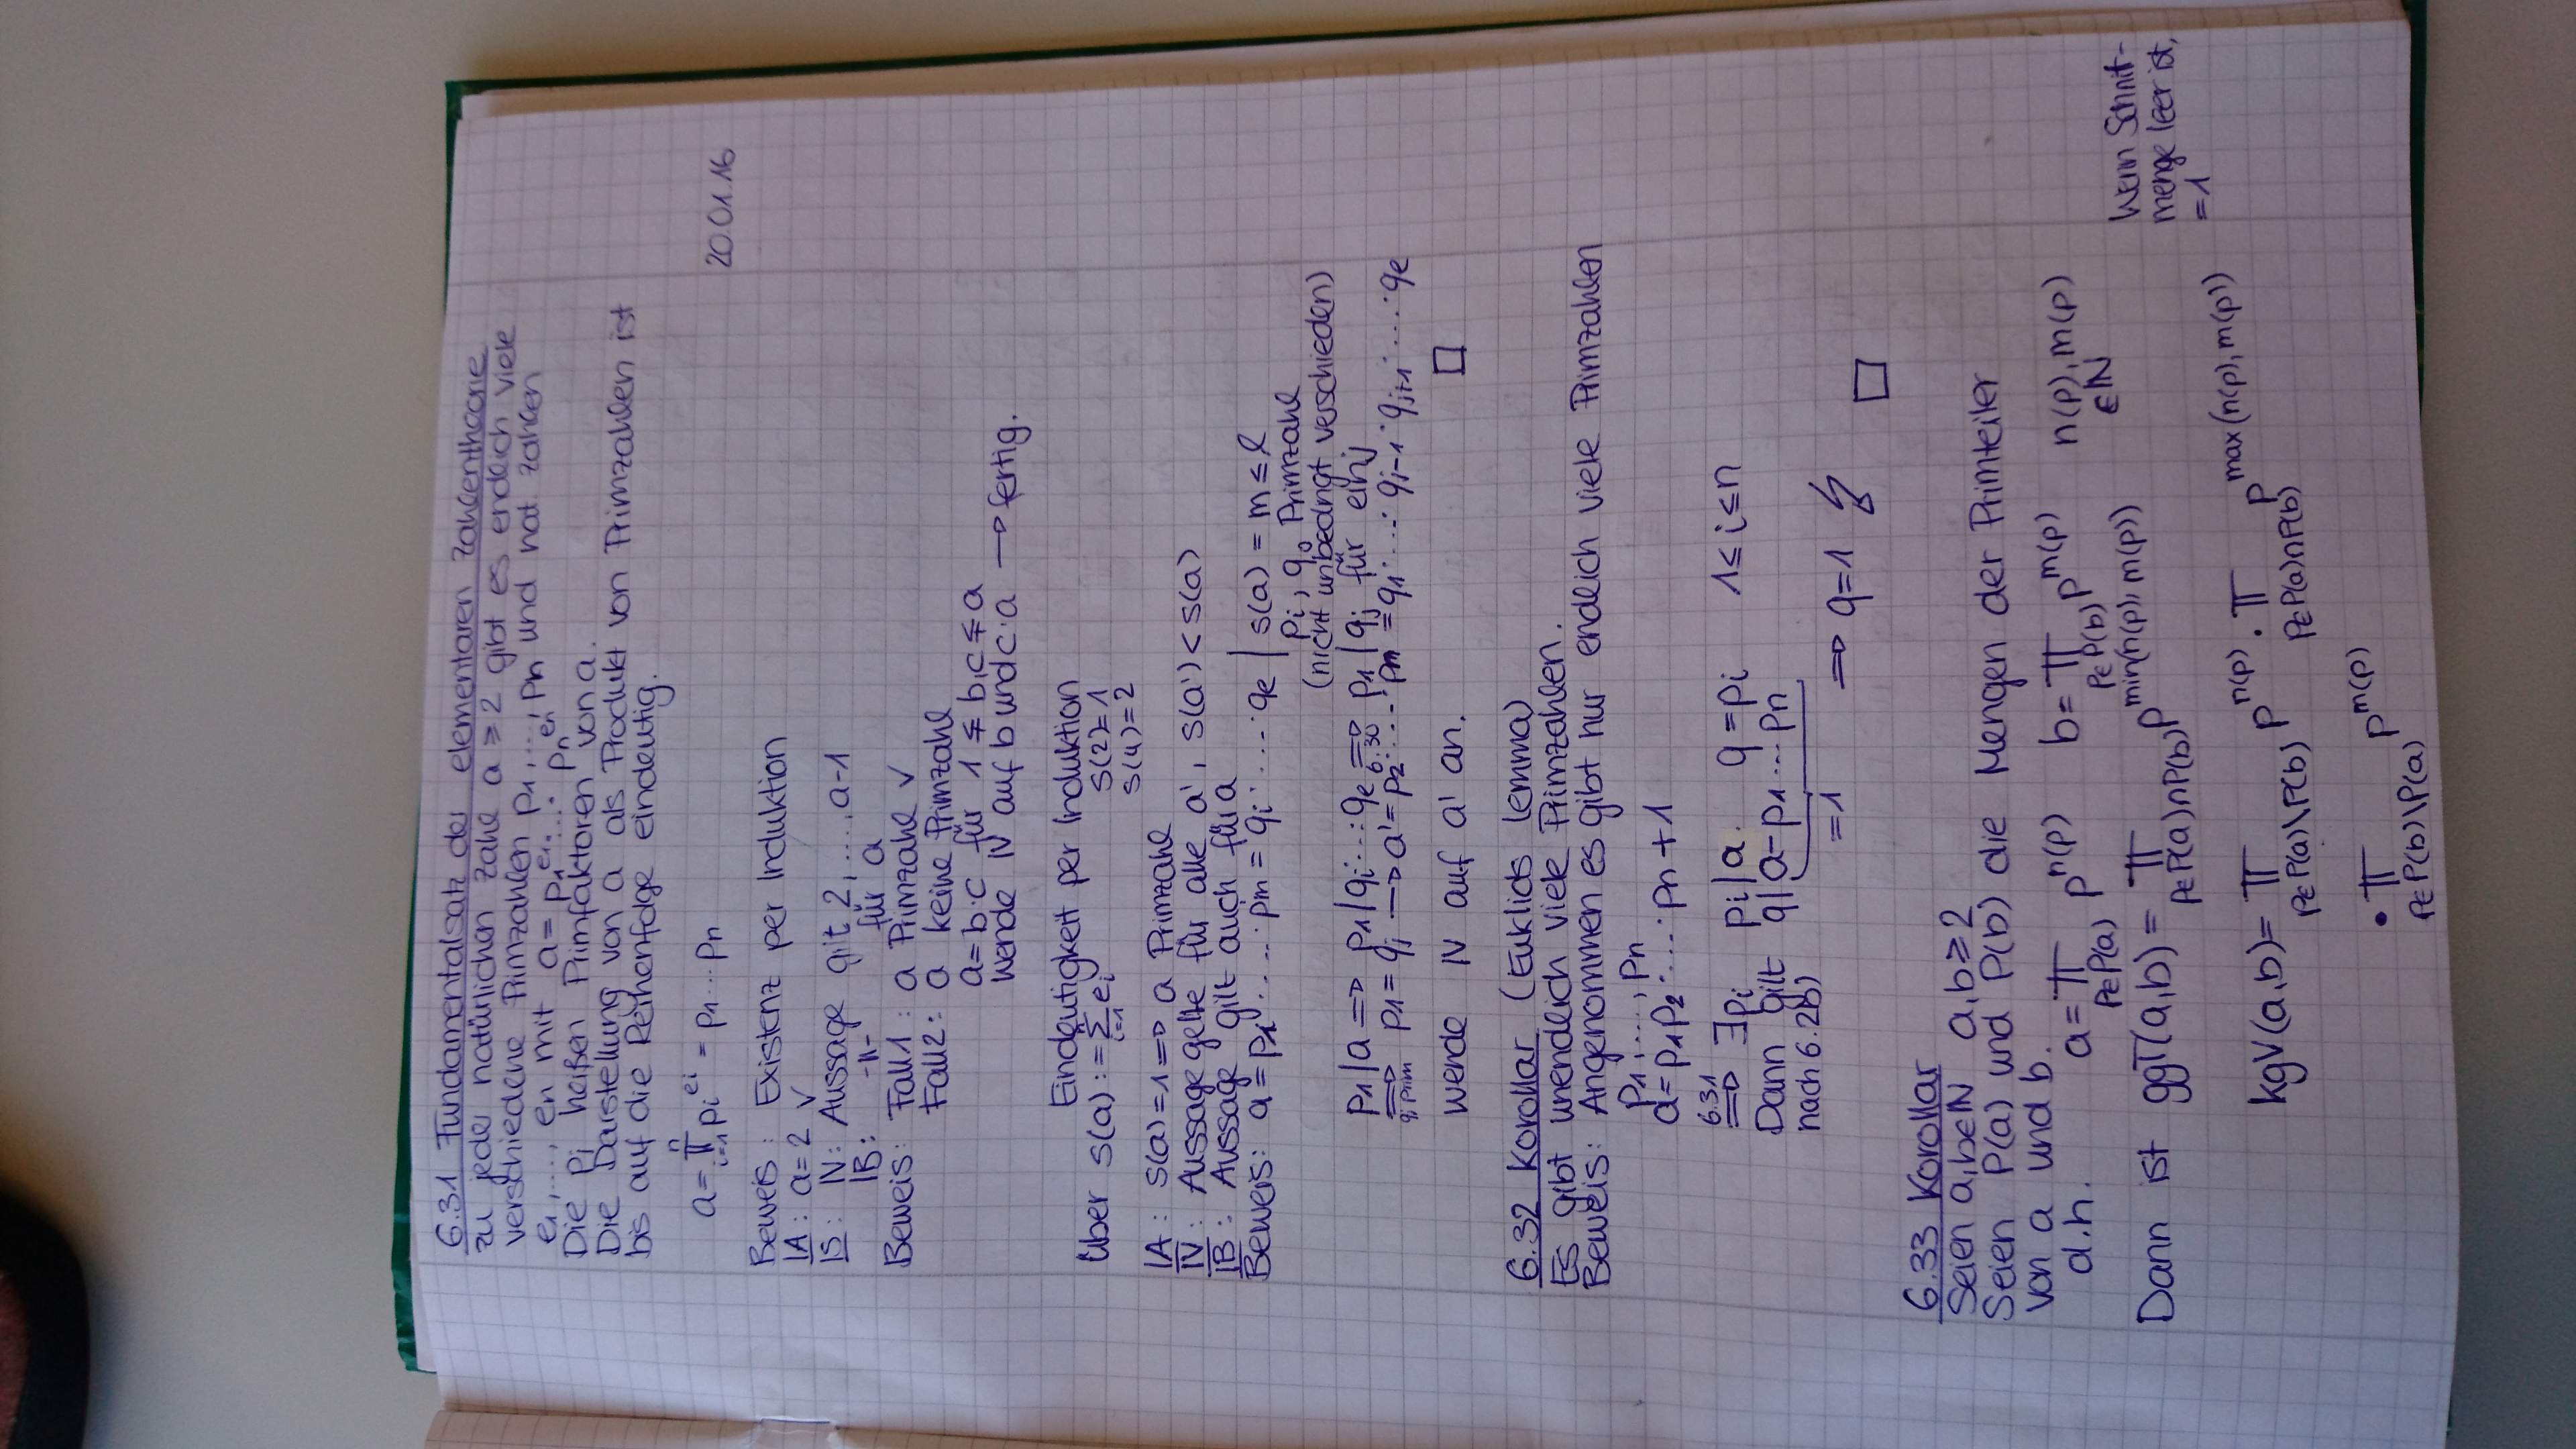 6.31 Fundamentalsatz der elementaren Zahlentheorie
zu jeder natürlichen Zahl a ≥ 2 gibt es endlich viele
verschiedene Primzahlen p₁, ..., pₙ und nat. Zahlen
e₁, ..., eₙ mit a = p₁^e₁ · ... · pₙ^eₙ
Die pᵢ heißen Primfaktoren von a.
Die Darstellung von a als Produkt von Primzahlen ist
bis auf die Reihenfolge eindeutig.
a = ∏_{i=1}^{n} pᵢ^{ei} = p₁ ... pₙ
20.01.16
Beweis: Existenz per Induktion
IA: a = 2 ✓
IS: IV: Aussage gilt 2, ..., a-1
IB: -"- für a
Beweis: Fall 1: a Primzahl ✓
Fall 2: a keine Primzahl
a = b·c für 1 ≨ b,c ≨ a
Wende IV auf b und c·a → fertig.
Eindeutigkeit per Induktion
Über s(a) := ∑_{i=1}^{n} eᵢ s(2) = 1
s(4) = 2
IA: s(a) = 1 ⇒ a Primzahl
IV: Aussage gelte für alle a', s(a') < s(a)
IB: Aussage gilt auch für a
Beweis: a = p₁ · ... · pm = qi · ... · qe | s(a) = m ≤ l
pi, q Primzahl
(nicht unbedingt verschieden)
p₁ | a ⇒ p₁ | qi · ... · qe ⇒_{6.30} p₁ | qj für ein j
⇒_{qj prim} p₁ = qj → a' = p₂ · ... · pm = q₁ · ... · q_{j-1} · q_{j+1} · ... · qe
Wende IV auf a' an. □
6.32 Korollar (Euklids Lemma)
Es gibt unendlich viele Primzahlen.
Beweis: Angenommen es gibt nur endlich viele Primzahlen
p₁, ..., pₙ
a = p₁p₂ · ... · pₙ + 1
⇒^{6.31} ∃pi pi | a. q = pi 1 ≤ i ≤ n
Dann gilt q | a - p₁ ... pₙ
nach 6.2b)
= 1 ⇒ q = 1 ↯ □
6.33 Korollar
Seien a,b ∈ ℕ a,b ≥ 2
Seien P(a) und P(b) die Mengen der Primteiler
von a und b.
d.h. a = ∏_{p∈P(a)} p^{n(p)} b = ∏_{p∈P(b)} p^{m(p)} n(p), m(p) ∈ ℕ
Dann ist ggT(a,b) = ∏_{p∈P(a)∩P(b)} p^{min(n(p), m(p))}
Wenn Schnit-
menge leer ist,
= 1
kgV(a,b) = ∏_{p∈P(a)\P(b)} p^{n(p)} · ∏_{p∈P(a)∩P(b)} p^{max(n(p), m(p))}
· ∏_{p∈P(b)\P(a)} p^{m(p)}